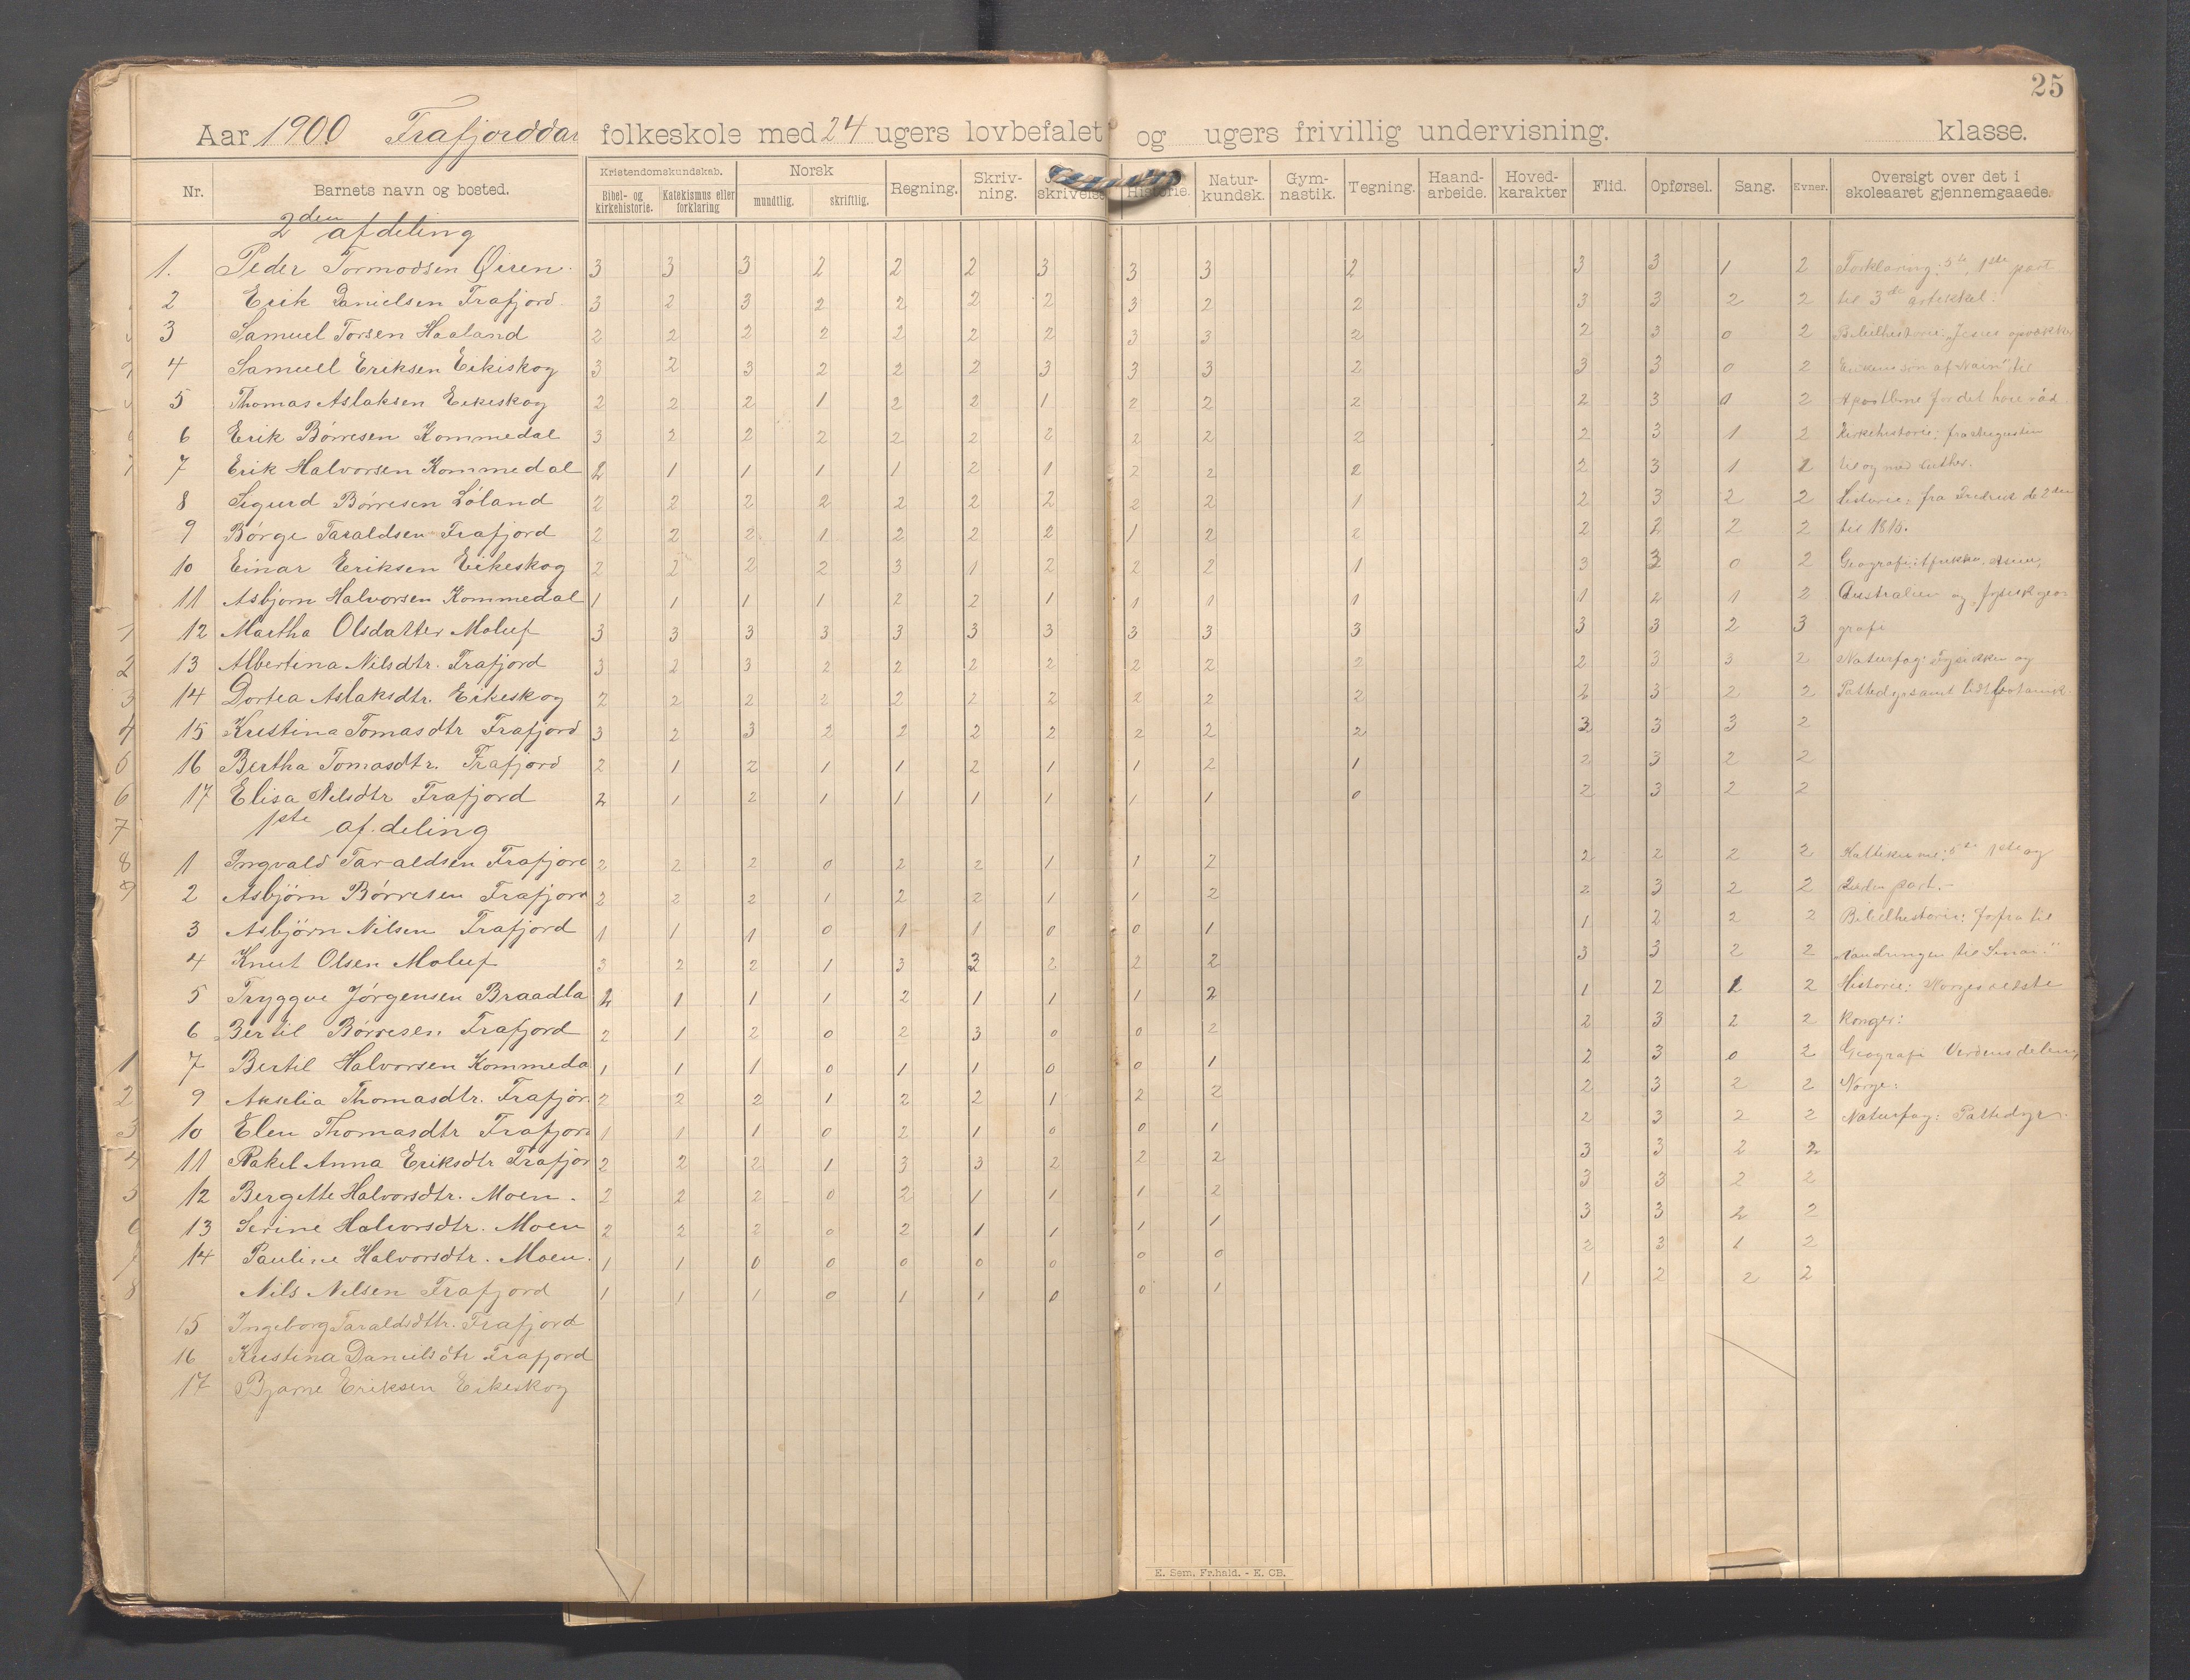 25
Aar 1900 Trafjorddal folkeskole med 24 ugers lovbefalet og ugers frivillig undervisning. klasse.
Nr. Barnets navn og bosted. Kristendomskundskab. Bibel- og kirkehistorie. Katekismus eller forklaring Norsk mundtlig. skriftlig. Regning. Skriv-ning. skrivelse Historie. Natur-kundsk. Gym-nastik. Tegning. Haand-arbeide. Hoved-karakter Flid. Opførsel. Sang. Evner. Oversigt over det i skoleaaret gjennemgaaede.
2den afdeling
1. Peder Tormodsen Øiren. 3 3 3 2 2 2 3 3 3 2 3 3 1 2 Forklaring: 1ste part
2 Erik Danielsen Trafjord. 3 2 3 2 2 2 2 3 2 2 3 3 2 2 til 3die artikkel:
3 Samuel Torsen Haaland 2 2 2 2 2 2 2 3 3 2 2 3 0 2 Bibelhistorie: "Jesus opvækker
4 Samuel Eriksen Eikiskog 3 2 3 2 2 2 3 3 3 2 3 3 0 2 Enkens søn af Nain" til
5 Thomas Aslaksen Eikeskog 2 2 2 1 2 2 1 2 2 2 2 3 0 2 Apostlene for det høie råd
6 Erik Börresen Kommedal 3 2 2 2 2 2 2 2 2 2 2 3 1 2 Kirkehistorie: fra Augustin
7 Erik Halvorsen Kommedal 2 1 1 1 1 2 1 2 2 2 2 3 1 2 til og med Luther.
8 Sigurd Börresen Löland 2 2 2 2 2 2 2 2 2 1 2 3 2 2 Historie: fra Fredrik de 2den
9 Börge Taraldsen Trafjord 2 2 2 1 2 2 2 1 2 2 2 2 2 2 til 1815.
10 Einar Eriksen Eikeskog 2 2 2 2 3 1 2 2 2 1 3 3 0 2 Geografi: Asien,
11 Asbjørn Halvorsen Kommedal 1 1 1 1 2 2 1 1 1 1 1 2 1 2 Australien og fysisk geo-
12 Martha Olsdatter Moluf 3 3 3 3 3 3 3 3 3 3 3 3 2 3 grafi
13 Albertina Nilsdtr. Trafjord 3 2 3 2 2 2 2 2 2 2 2 3 3 2 Naturfag: Fysikken og
14 Dortea Aslaksdtr. Eikeskog 2 2 2 2 2 2 2 2 2 2 2 3 2 2 Pattedyr samt lidt botanik.
15 Kristina Tomasdtr Trafjord 3 2 3 2 2 2 2 2 2 2 3 3 3 2
16 Bertha Tomasdtr. Trafjord 2 1 2 1 1 2 1 1 2 1 2 3 2 2
17 Elisa Nilsdtr Trafjord 2 1 2 1 1 1 1 1 1 0 2 3 2 2
1ste afdeling
1 Ingvald Taraldsen Trafjord 2 2 2 0 2 2 1 1 2 2 2 2 2 1ste og
2 Asbjörn Börresen Trafjord 2 2 2 1 2 2 1 1 2 2 3 2 2 2den part.-
3 Asbjörn Nilsen Trafjord 1 1 1 0 1 1 0 0 1 1 2 2 2 Bibelhistorie: forfra til
4 Knut Olsen Moluf 3 2 2 1 3 3 2 2 2 3 3 2 2 "Vandringen til Sinai."
5 Tryggve Jörgensen Braadla 2 1 1 1 2 1 1 1 2 1 2 1 2 Historie: Norges ældste
6 Bertil Börresen Trafjord 2 1 2 0 2 3 0 0 2 2 3 2 2 Konger:
7 Bertil Halvorsen Kommeda 1 1 1 0 1 1 0 0 1 2 3 0 2 Geografi Verdensdelene,
9 Akselia Thomasdtr. Trafjor 2 2 2 1 2 2 1 2 2 2 3 2 2 Norge:
10 Elen Thomasdtr Trafjord 1 1 1 0 2 1 0 0 1 2 3 2 2 Naturfag: Pattedyr.
11 Rakel Anna Eriksdtr Trafjor 2 2 2 1 3 3 2 2 2 3 3 2 2
12 Bergitte Halvorsdtr. Moen. 2 2 2 0 2 1 1 1 2 3 3 2 2
13 Serine Halvorsdtr. Moen 2 2 2 0 2 1 1 1 1 3 3 2 2
14 Pauline Halvorsdtr. Moen. 1 1 0 0 0 0 0 0 0 2 3 1 2
Nils Nilsen Trafjord 1 1 1 0 1 1 0 0 1 1 2 2 2
15 Ingeborg Taraldsdtr. Trafjord
16 Kristina Danielsdtr Trafjord
17 Bjarne Eriksen Eikeskog
E. Sem, Fr.hald. - E. CB.